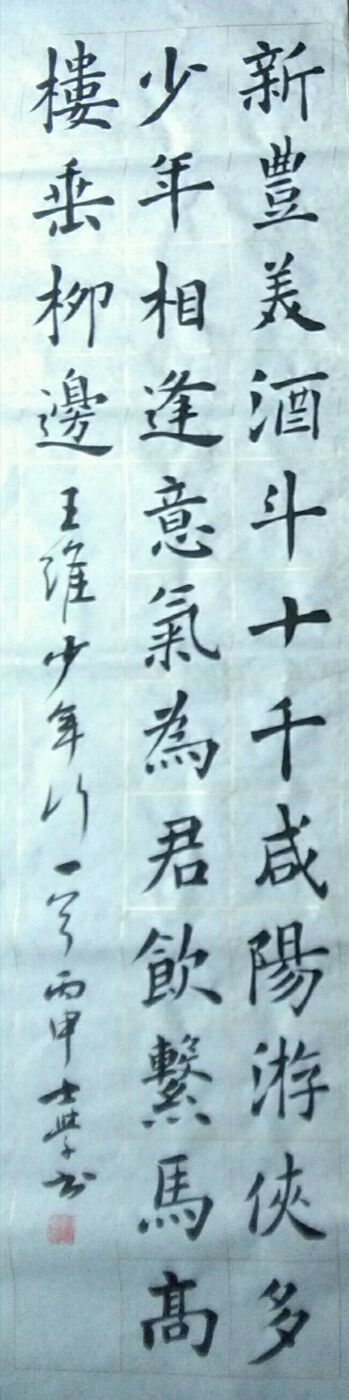 新豐美酒斗十千咸陽游俠多
少年相逢意氣為君飲繫馬高
樓垂柳邊
王維少年行一首丙申士學书